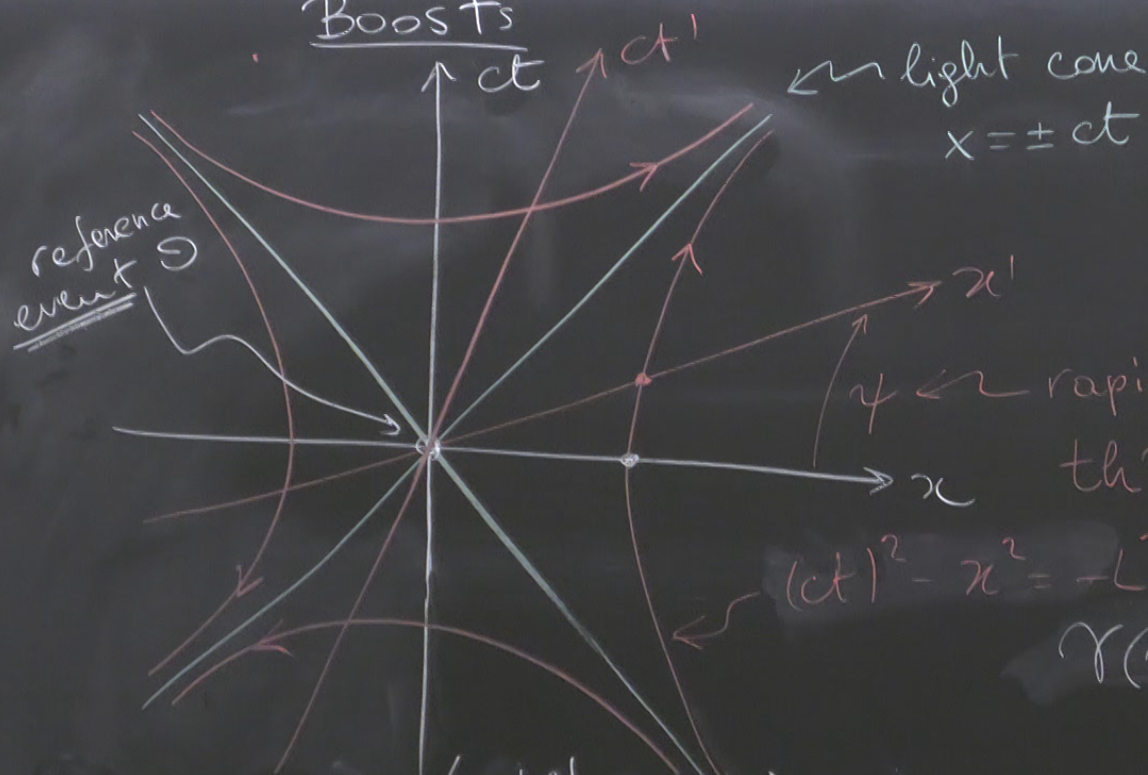 Boosts
ct
ct'
light cone
x = ± ct
reference
event O
x'
ψ
x
(ct)² - x² = -L²
γ(